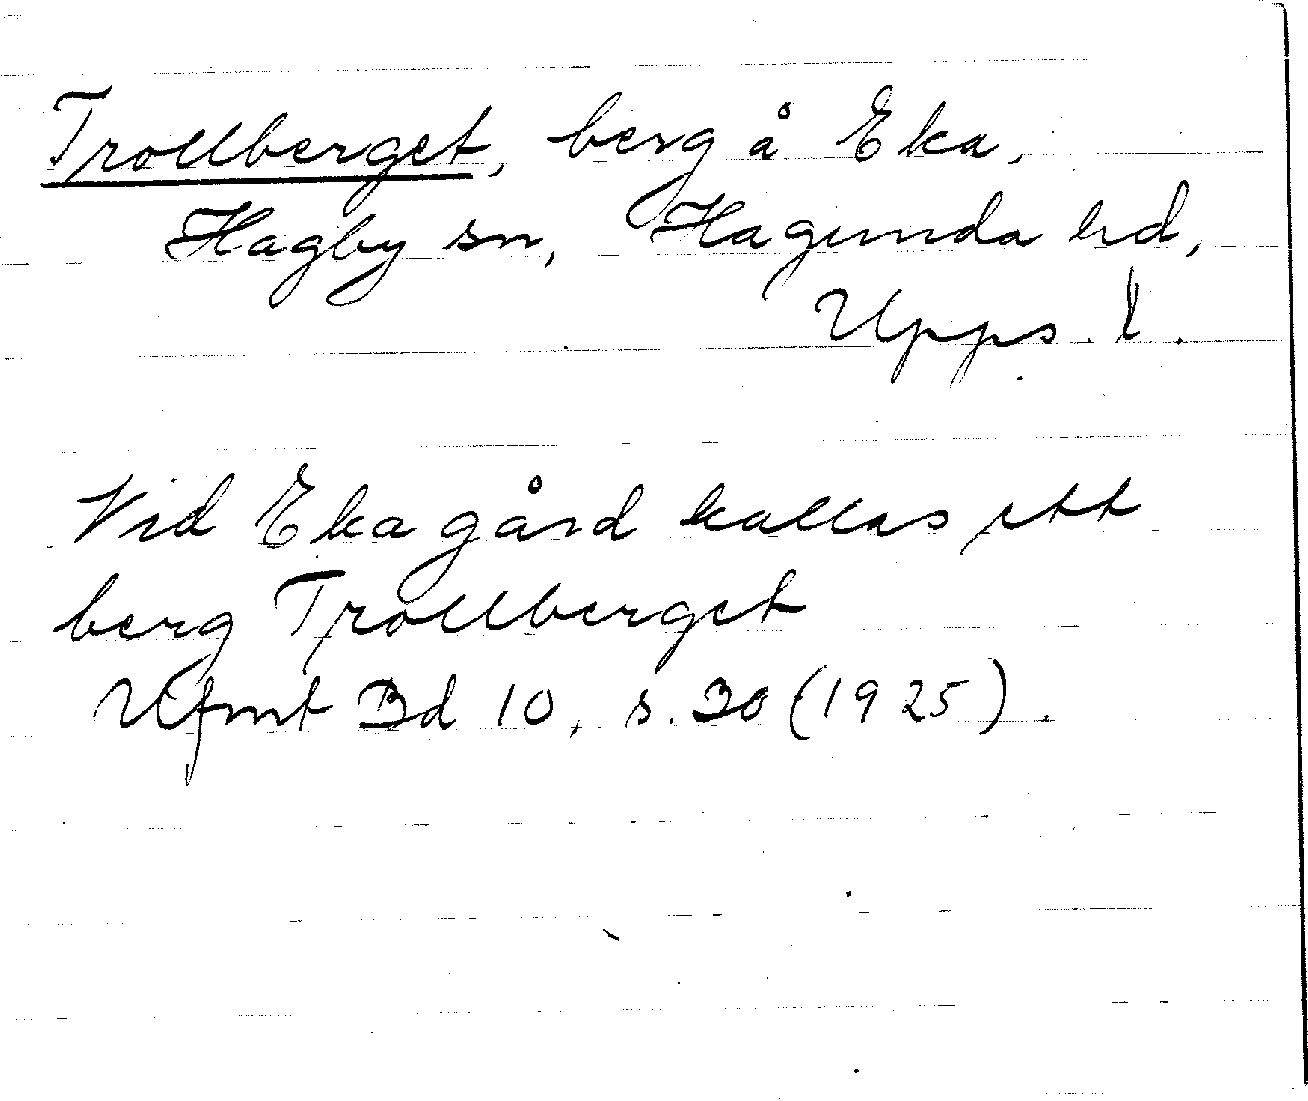 Trollberget, berg å Eka,
Hagby sn, Hagunda hd,
Upps. l.
Vid Eka gård kallas ett
berg Trollberget
Ufmt Bd 10, s. 30 (1925).